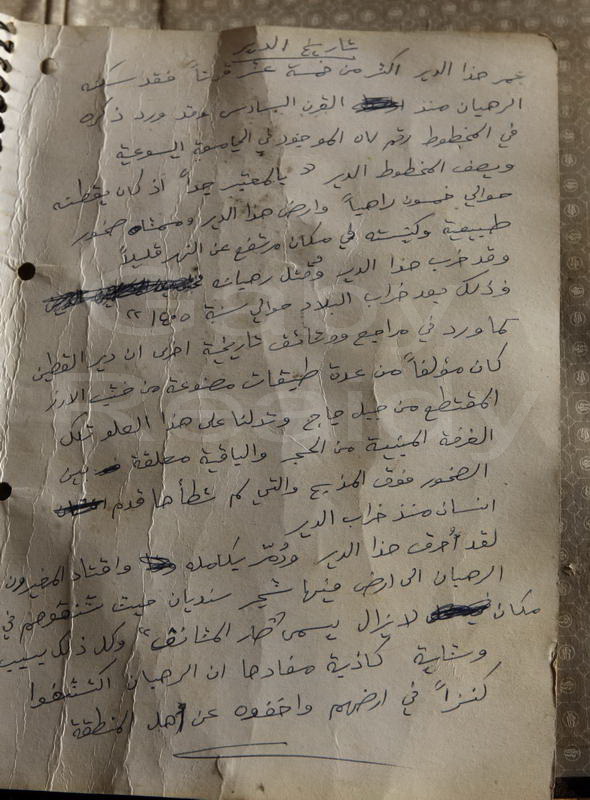 تاريخ الدير
عمر هذا الدير اكثر من خمسة عشر قرناً فقد سكنه
الرهبان منذ القرن السادس وقد ورد ذكره
في المخطوط رقم ٥٧ الموجود في الجامعة اليسوعية
ويصف المخطوط الدير " بالمعتبر جداً اذ كان يقطنه
حوالي خمسون راهباً وارض هذا الدير صخور
طبيعية وكنيسته في مكان مرتفع عن النهر قليلاً
وقد خرب هذا الدير وقُتل رهبانه
وذلك بعد خراب البلاد حوالي سنة ١٤٥٥ "
كما ورد في مراجع ووثائق تاريخية اخرى ان دير القطين
كان مؤلفاً من عدة طبقات مصنوعة من خشب الارز
المقتطع من جبل جاج وتدلنا على هذا العلو تلك
الغرفة المبنية من الحجر والباقية معلقة بين
الصخور فوق المذبح والتي لم تطأها قدم
انسان منذ خراب الدير
لقد أُحرق هذا الدير ودُمّر بكامله واقتاد المغيرون
الرهبان الى ارض فيها شجر سنديان حيث شنقوهم في
مكان لا يزال يسمى " المشانق " وكل ذلك بسبب
وشاية كاذبة مفادها ان الرهبان اكتشفوا
كنزاً في ارضهم واخفوه عن أهل المنطقة
Gaby
Reejy